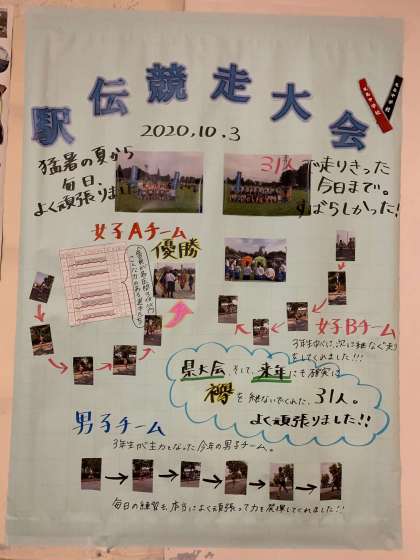 駅伝競走大会
2020,10.3
猛暑の夏から
毎日、
よく頑張りました
31人で走りきった
今日まで。
すばらしかった!
女子Aチーム
優勝
女子Bチーム
3年生中心に、次に繋なぐ走り
をしてくれました!!!
県大会 そして、来年にも確実に
襷を繋ないでくれた、31人。
よく頑張りました!!
男子チーム
3年生が主力となった今年の男子チーム。
毎日の練習も、本当によく頑張って力を発揮してくれました!!